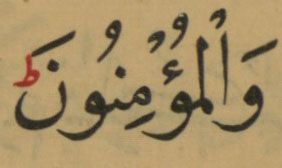 وَالْمُؤْمِنُونَ ط